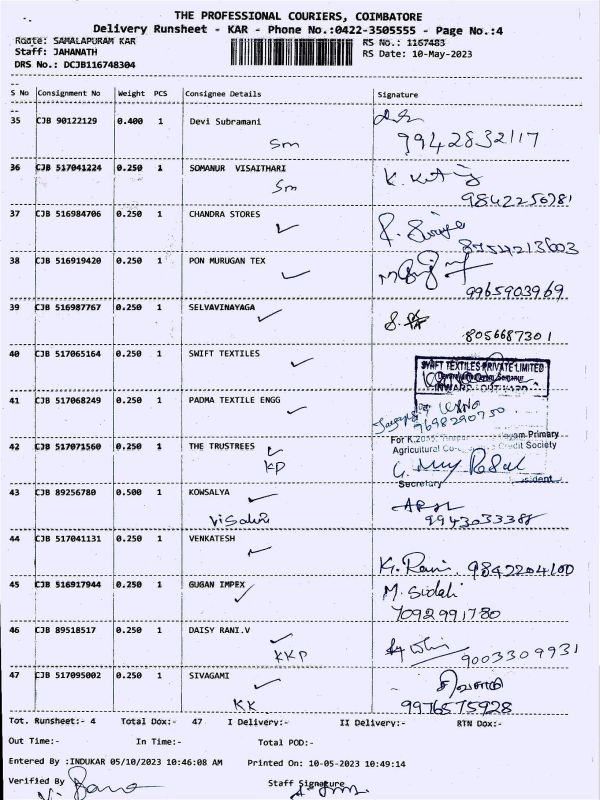 THE PROFESSIONAL COURIERS, COIMBATORE
Delivery Runsheet - KAR - Phone No.:0422-3505555 - Page No.:4
Route: SAMALAPURAM KAR RS No.: 1167483
Staff: JAHANATH RS Date: 10-May-2023
DRS No.: DCJB116748304
S No Consignment No Weight PCS Consignee Details Signature
35 CJB 90122129 0.400 1 Devi Subramani
Sm 9942832117
36 CJB 517041224 0.250 1 SOMANUR VISAITHARI
Sm 9842256781
37 CJB 516984706 0.250 1 CHANDRA STORES
8754213603
38 CJB 516919420 0.250 1 PON MURUGAN TEX
9965903969
39 CJB 516987767 0.250 1 SELVAVINAYAGA
8056687301
40 CJB 517065164 0.250 1 SWIFT TEXTILES
SWIFT TEXTILES PRIVATE LIMITED
41 CJB 517068249 0.250 1 PADMA TEXTILE ENGG
9698290750
42 CJB 517071560 0.250 1 THE TRUSTREES
KP
Primary
Agricultural Credit Society
Secretary
43 CJB 89256780 0.500 1 KOWSALYA
Visalini 9943033388
44 CJB 517041131 0.250 1 VENKATESH
K. Rani. 9842204100
45 CJB 516917944 0.250 1 GUGAN IMPEX
7092991780
46 CJB 89518517 0.250 1 DAISY RANI.V
KKP 9003309931
47 CJB 517095002 0.250 1 SIVAGAMI
சிவகாமி
KK 9976575928
Tot. Runsheet:- 4 Total Dox:- 47 I Delivery:- II Delivery:- RTN Dox:-
Out Time:- In Time:- Total POD:-
Entered By :INDUKAR 05/10/2023 10:46:08 AM Printed On: 10-05-2023 10:49:14
Verified By Staff Signature